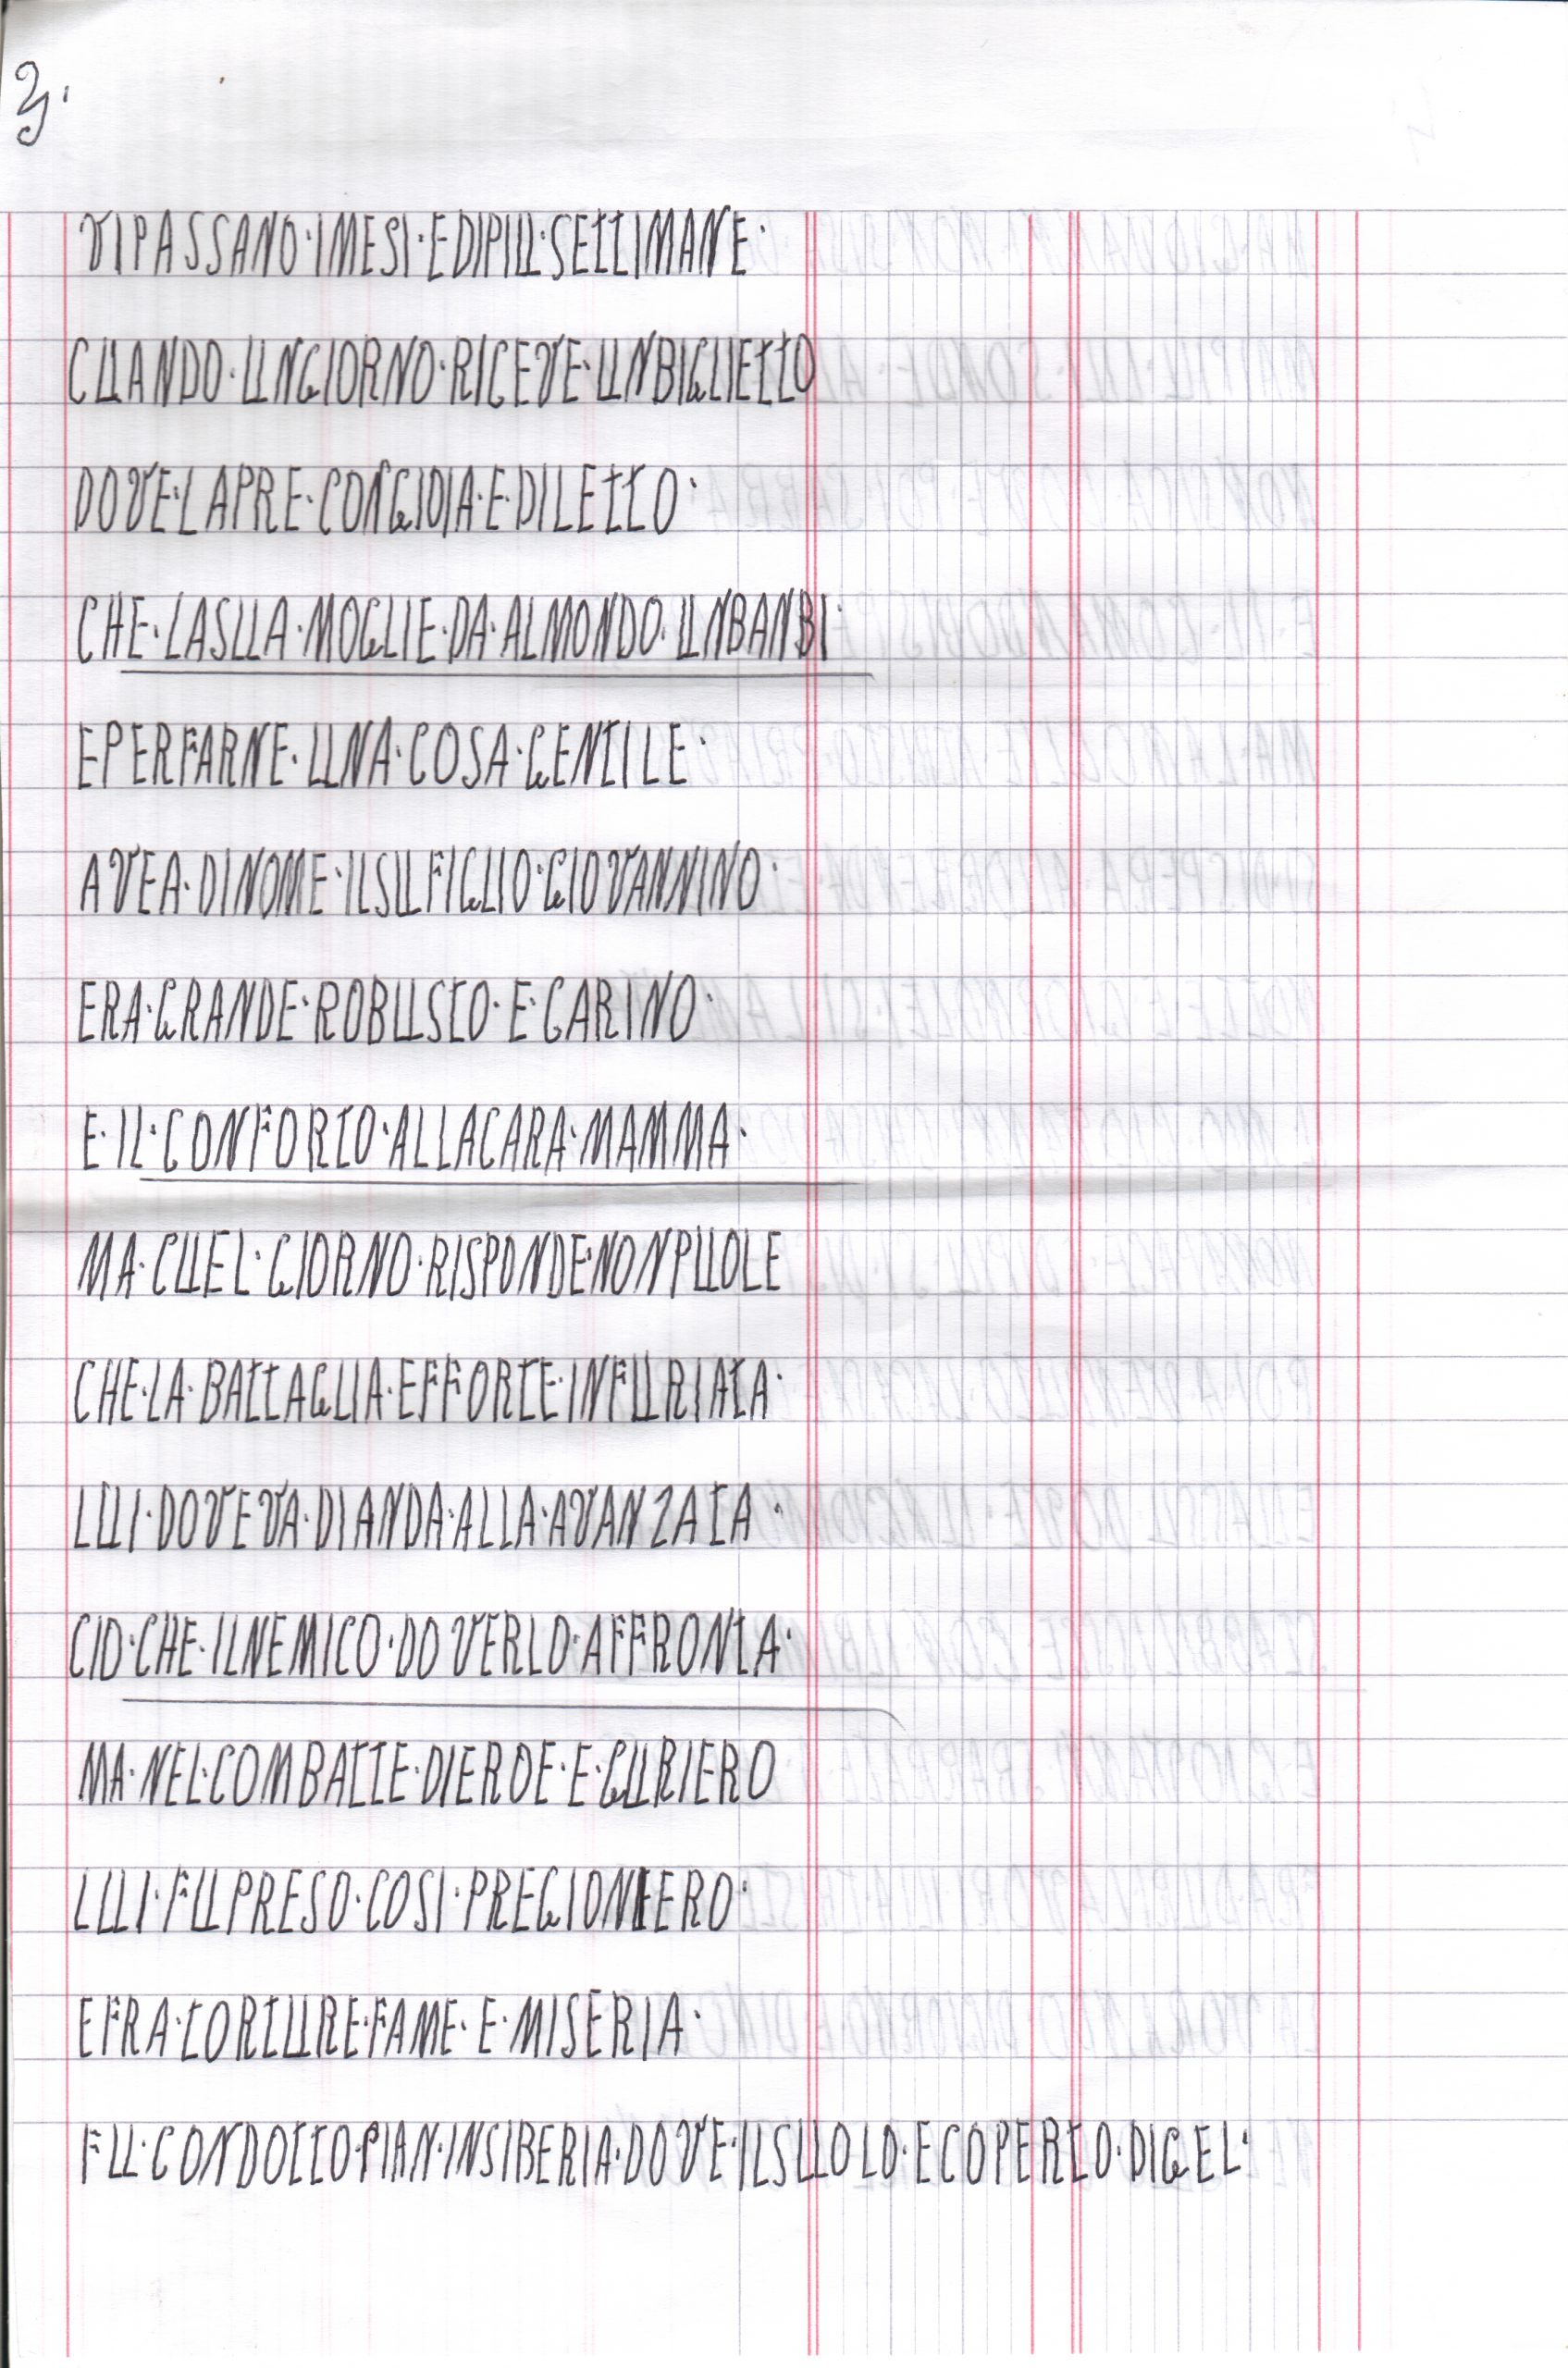 3.
VIPASSANO·IMESI·EDIPIU·SETTIMANE·
CUANDO·UNGIORNO·RICEVE·UNBIGLIETTO
DOVE·LAPRE·CONGIOIA·E·DILETTO·
CHE·LASUA·MOGLIE·DA·ALMONDO·UNBANBI·
EPERFARNE·UNA·COSA·GENTILE·
AVEA·DINOME·ILSUFIGLIO·GIOVANNINO·
ERA·GRANDE·ROBUSTO·E·CARINO·
E·IL·CONFORTO·ALLACARA·MAMMA·
MA·CUEL·GIORNO·RISPONDE·NONPUOLE
CHE·LA·BATTAGLIA·EFFORTE·INFURIATA·
LUI·DOVEVA·DIANDA·ALLA·AVANZATA·
CIO·CHE·ILNEMICO·DOVERLO·AFFRONTA·
MA·NEL·COMBATTE·DIEROE·E·GURIERO
LUI·FUPRESO·COSI·PREGIONIERO·
EFRA·TORTURE·FAME·E·MISERIA·
FU·CONDOTTO·PIAN·INSIBERIA·DOVE·ILSUOLO·ECOPERTO·DIGEL·